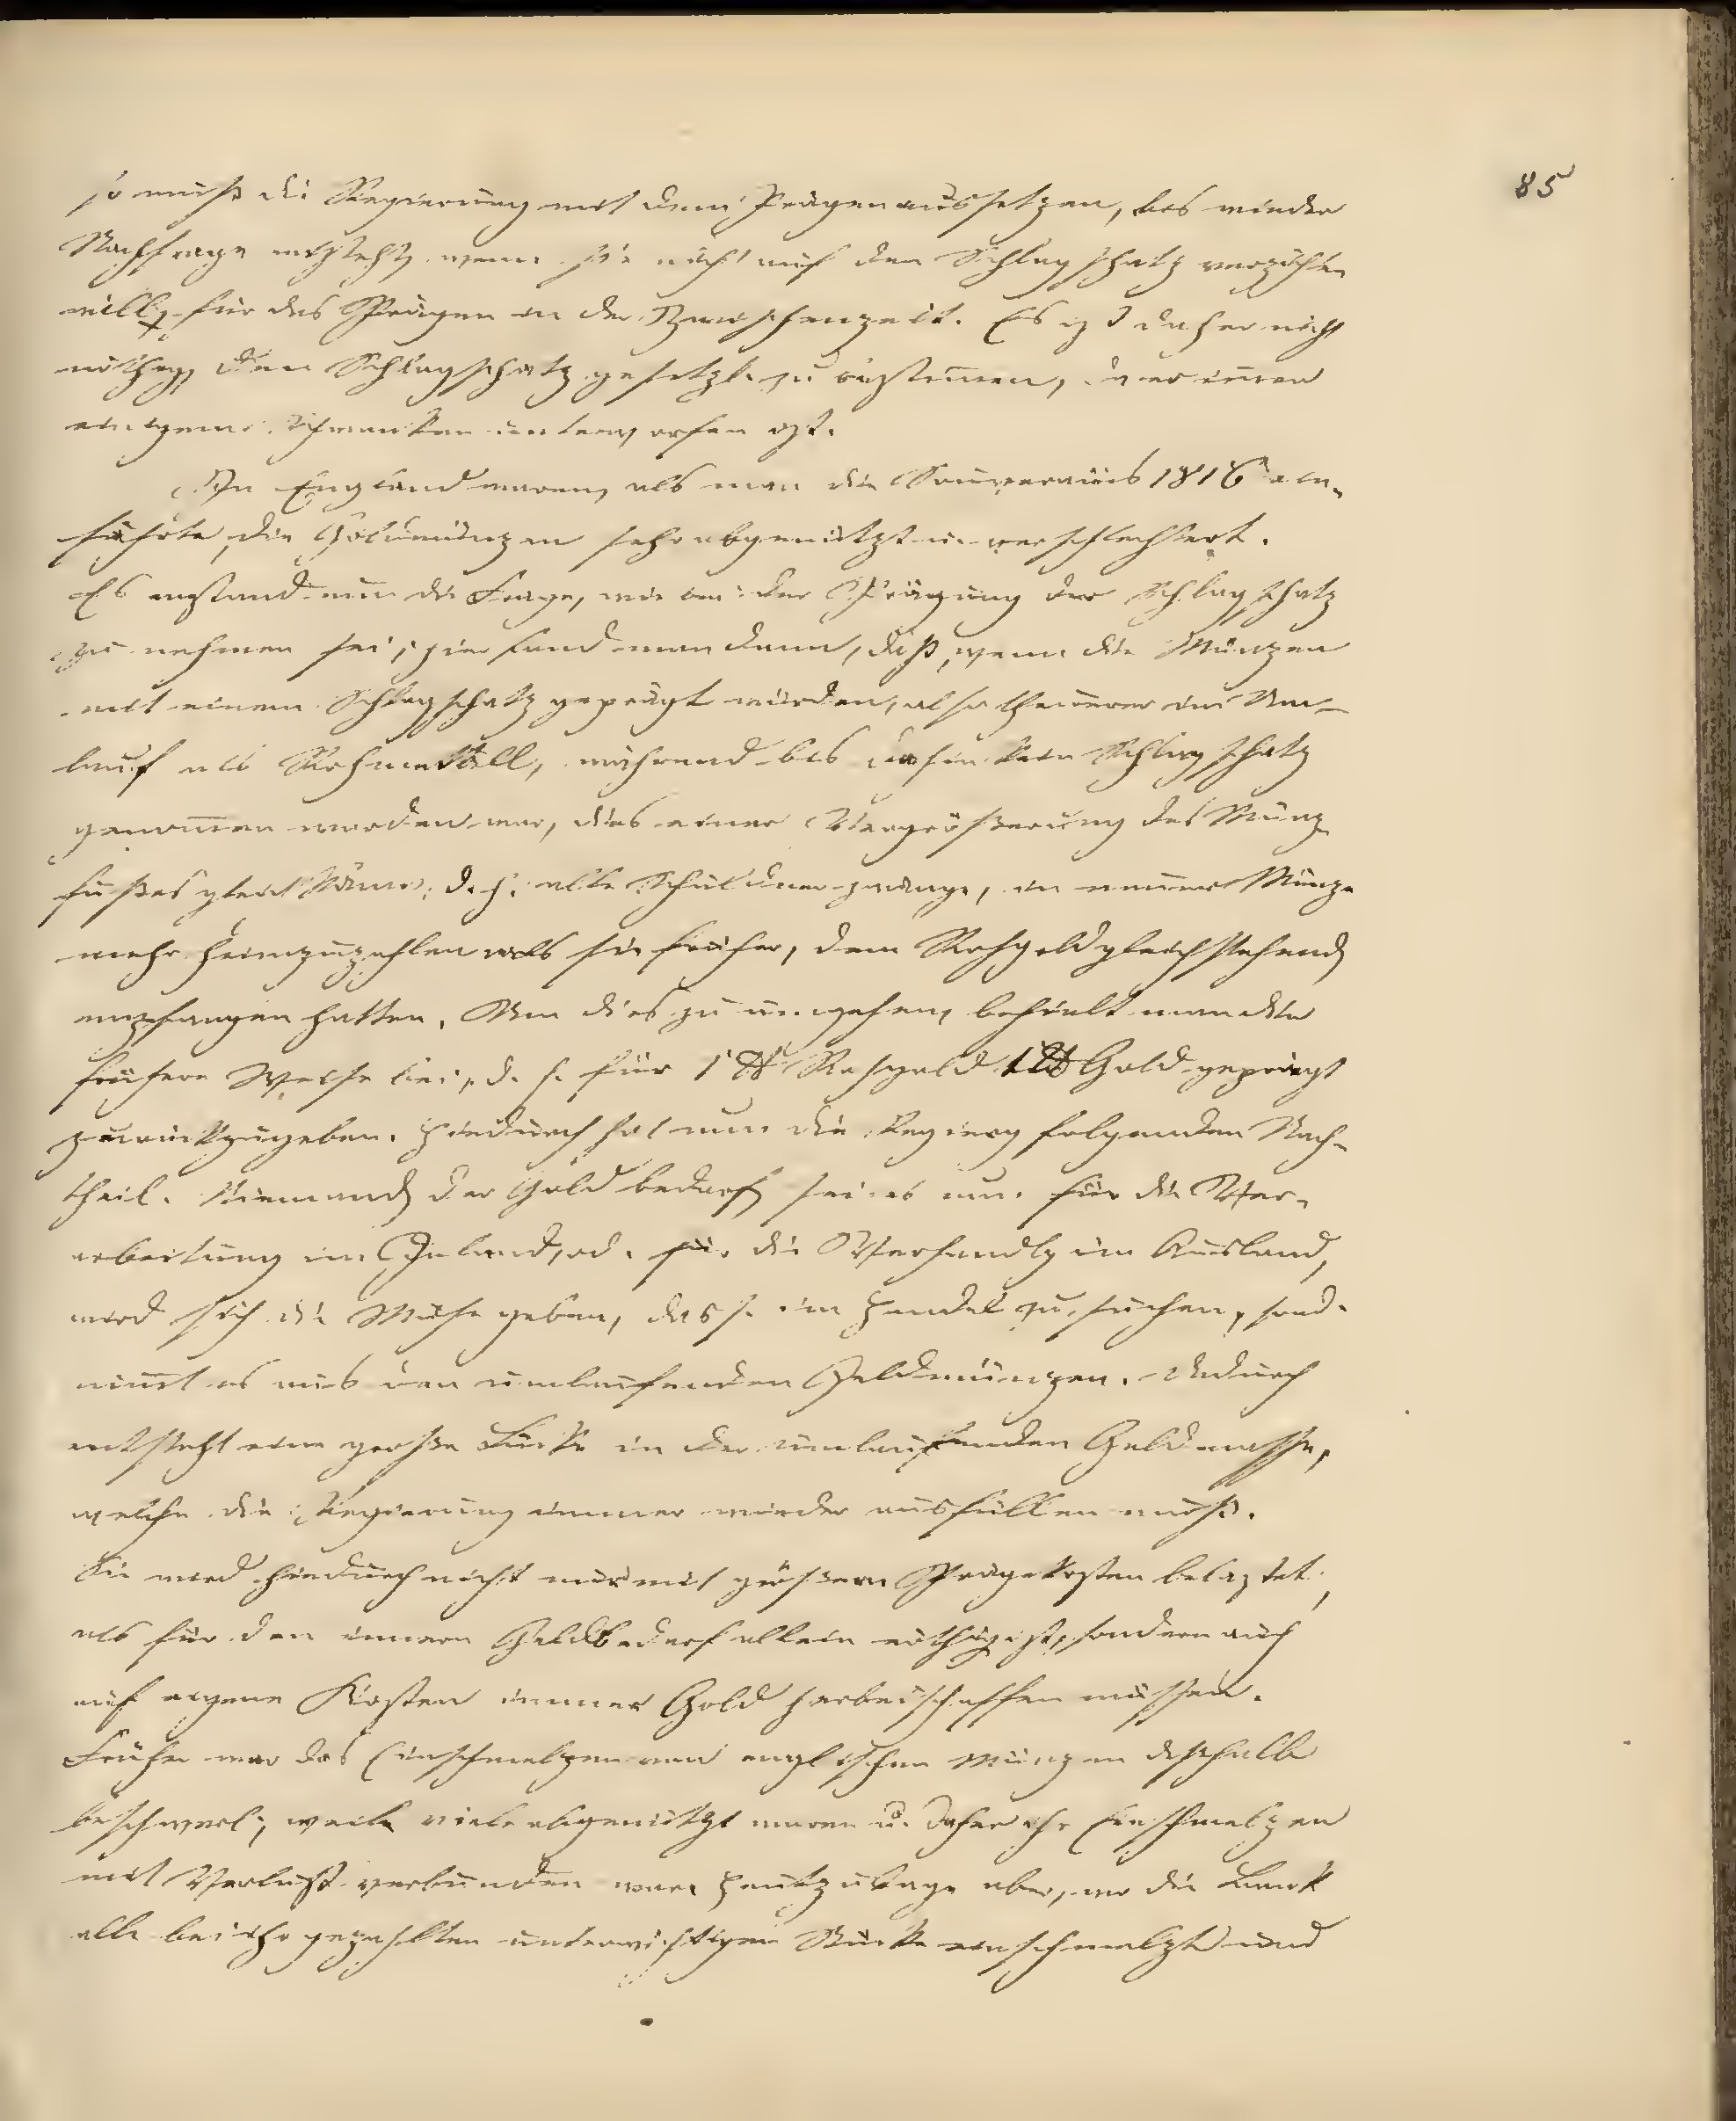 85
so muß die Regierung mit dem Prägen aussetzen, bis wieder
Nachfrage entsteht, wenn sie nicht auf den Schlagschatz verzichten
will, für das Prägen in der Zwischenzeit. Es ist daher nicht
nöthig, den Schlagschatz gesetzl. zu bestimmen, da er
Schwanken unterworfen ist.
In England waren, als man die Souverains 1816 ein-
führte, die Goldmünzen sehr abgenützt u. verschlechtert.
Es entstand nun die Frage, wie bei der Prägung der Schlagschatz
zu nehmen sei; hier fand man denn, daß, wenn die Münzen
mit einem Schlagschatz geprägt würden, also theuerer im Um-
lauf als Rohmetall, während bis dahin kein Schlagschatz
genom̅en worden war, dies einer Vergrößerung des Münz
fußes gleich käme, d. h. alle Schuldner zwänge, in neuer Münze
mehr heimzuzahlen als sie früher, dem Rohgold gleichstehend
empfangen hatten. Um dies zu umgehen, behielt man die
frühere Weise bei, d. h. für 1 ℔ Rohgold 1 ℔ Gold geprägt
zurückzugeben. Hiedurch hat nun die Regierg folgenden Nach-
theil. Niemand der Gold bedarf, sei es nun für die Ver-
arbeitung im Inland, od. für die Versendg im Ausland,
wird sich die Mühe geben, dass. im Handel zu suchen, sond.
nim̅t es aus den umlaufenden Geldmünzen. Dadurch
entsteht eine große Lücke in der umlaufenden Geldmasse,
welche die Regierung immer wieder ausfüllen muß.
Sie wird hiedurch nicht nur mit größern Prägekosten belastet,
als für den innern Geldbedarf allein nöthig ist, sondern auch
auf eigene Kosten immer Gold herbeischaffen müssen.
Früher war das Einschmelzen von englischen Münzen deßhalb
beschwerl., weil viele abgenützt waren u. daher ihr Einschmelzen
mit Verlust verbunden war. Heutzutage aber, wo die Bank
alle bei ihr gezahlten unterwichtigen Stücke einschmelzt und